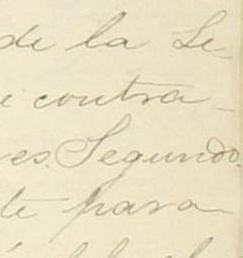 de la Se
contra-
es. Segundo.
te para